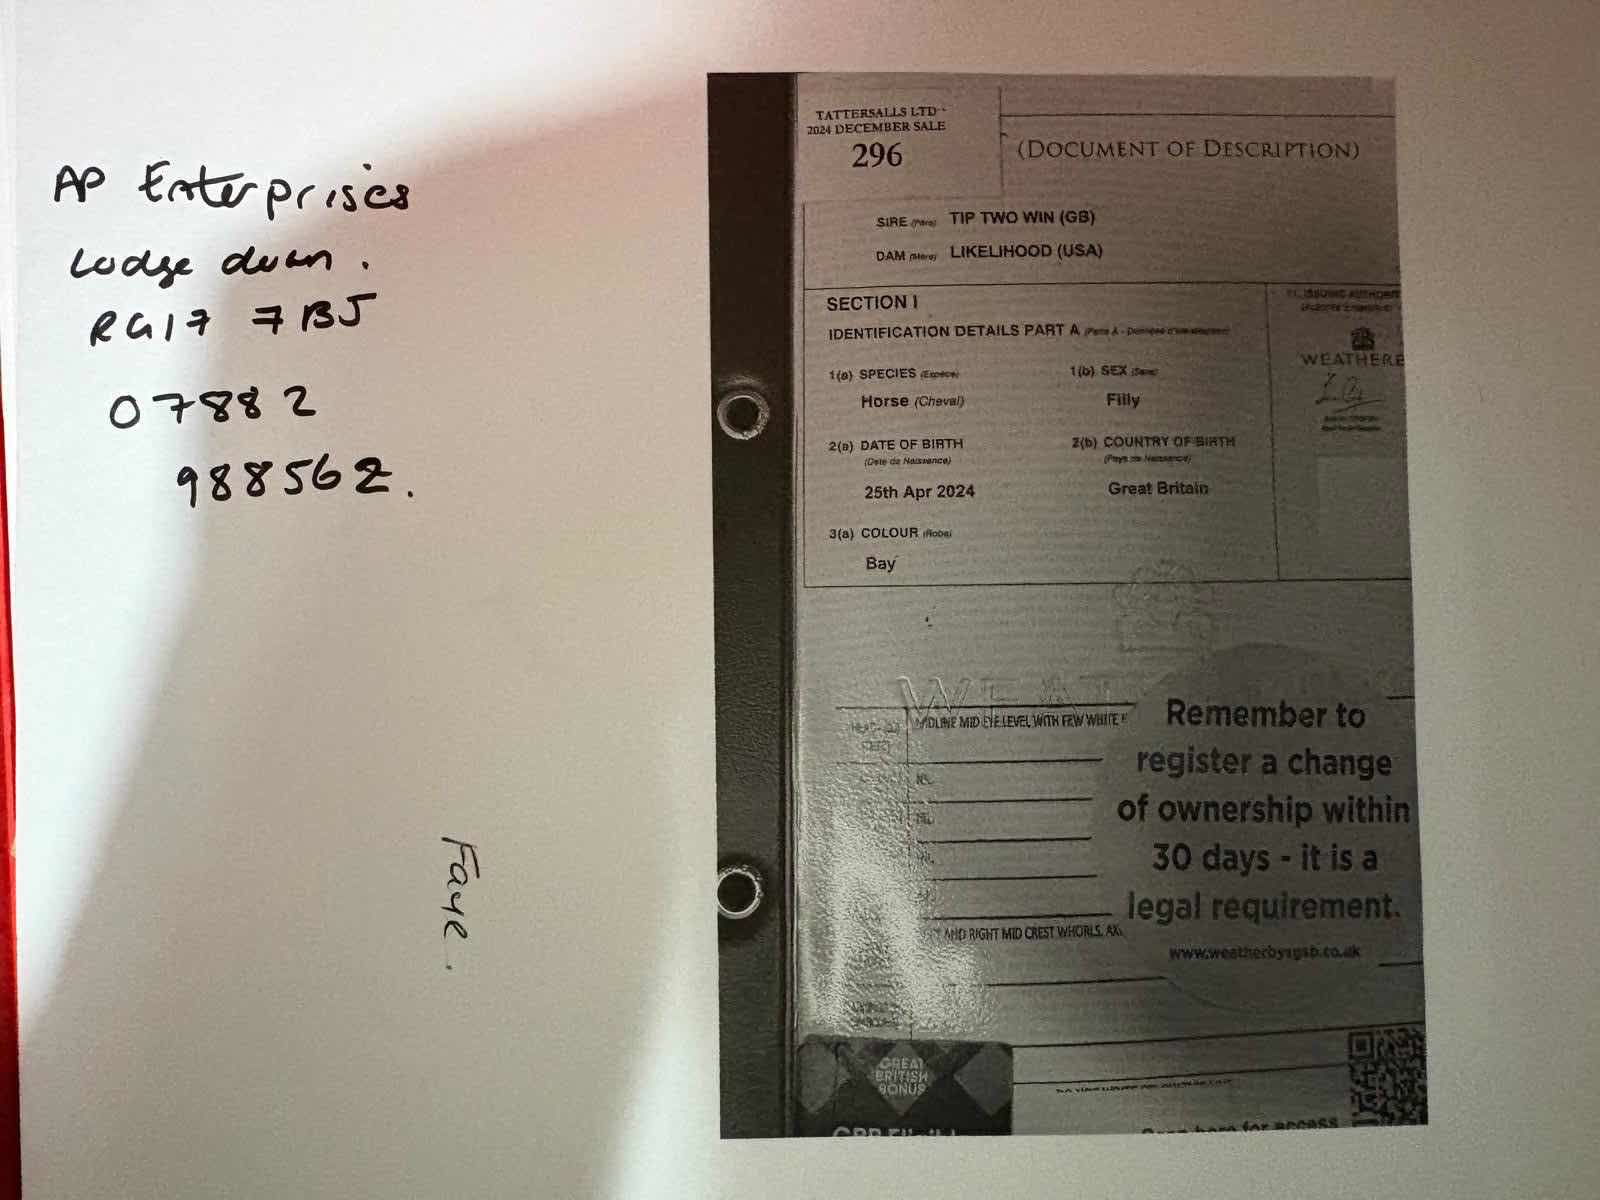 AP Enterprises
Lodge down.
RG17 7BJ
07882
988562.
Faye.
TATTERSALLS LTD
2024 DECEMBER SALE
296
(DOCUMENT OF DESCRIPTION)
SIRE (Père) TIP TWO WIN (GB)
DAM (Mère) LIKELIHOOD (USA)
SECTION I
IDENTIFICATION DETAILS PART A
1(a) SPECIES (Espèce) 1(b) SEX (Sexe)
Horse (Cheval) Filly
2(a) DATE OF BIRTH 2(b) COUNTRY OF BIRTH
(Date de Naissance) (Pays de Naissance)
25th Apr 2024 Great Britain
3(a) COLOUR (Robe)
Bay
ISSUING AUTHORIT
WEATHERB
WEAT
MIDLINE MID EYE LEVEL WITH FEW WHITE
AND RIGHT MID CREST WHORLS.
Remember to
register a change
of ownership within
30 days - it is a
legal requirement.
www.weatherbysgsb.co.uk
GREAT
BRITISH
BONUS
here for access